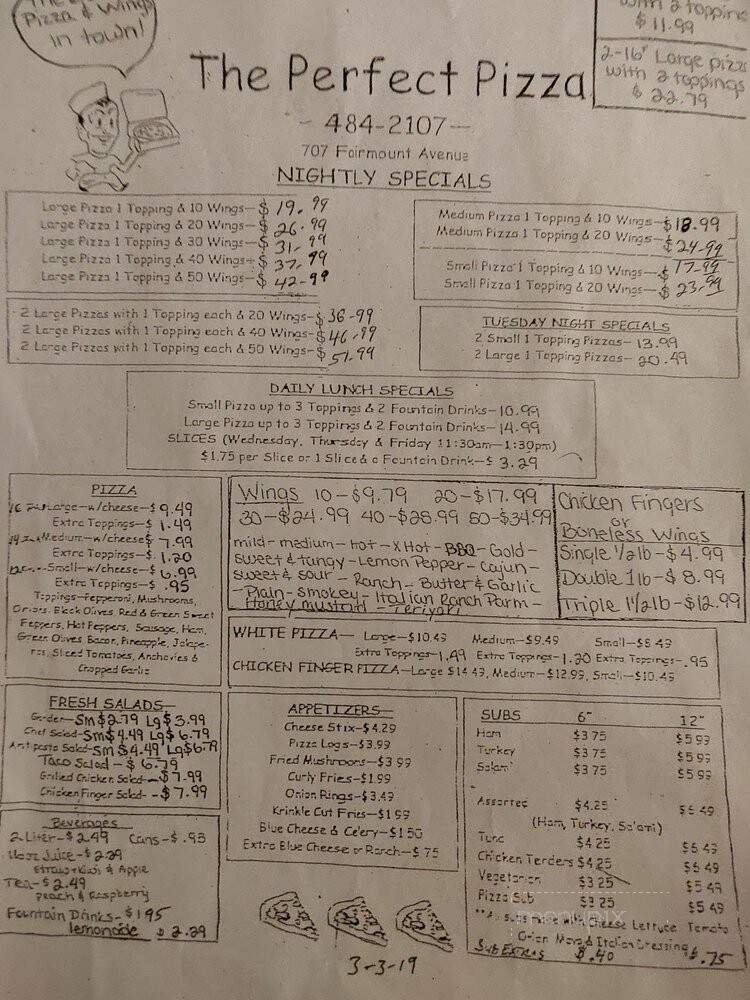 Pizza & Wings
in town!
with 2 toppings
$11.99
2-16" Large pizza
with 2 toppings
$22.79
The Perfect Pizza
- 484-2107 -
707 Fairmount Avenue
NIGHTLY SPECIALS
Large Pizza 1 Topping & 10 Wings-$19.99
Large Pizza 1 Topping & 20 Wings-$26.99
Large Pizza 1 Topping & 30 Wings-$31.99
Large Pizza 1 Topping & 40 Wings-$37.99
Large Pizza 1 Topping & 50 Wings-$42.99
Medium Pizza 1 Topping & 10 Wings-$18.99
Medium Pizza 1 Topping & 20 Wings-$24.99
Small Pizza 1 Topping & 10 Wings-$17.99
Small Pizza 1 Topping & 20 Wings-$23.99
2 Large Pizzas with 1 Topping each & 20 Wings-$36.99
2 Large Pizzas with 1 Topping each & 40 Wings-$46.99
2 Large Pizzas with 1 Topping each & 50 Wings-$51.99
TUESDAY NIGHT SPECIALS
2 Small 1 Topping Pizzas- 13.99
2 Large 1 Topping Pizzas- 20.49
DAILY LUNCH SPECIALS
Small Pizza up to 3 Toppings & 2 Fountain Drinks-10.99
Large Pizza up to 3 Toppings & 2 Fountain Drinks-14.99
SLICES (Wednesday, Thursday & Friday 11:30am-1:30pm)
$1.75 per Slice or 1 Slice & a Fountain Drink-$3.29
PIZZA
Large-w/cheese-$9.49
Extra Toppings-$1.49
Medium-w/cheese$7.99
Extra Toppings-$1.20
Small-w/cheese-$6.99
Extra Toppings-$.95
Toppings-Pepperoni, Mushrooms,
Onions, Black Olives, Red & Green Sweet
Peppers, Hot Peppers, Sausage, Ham,
Green Olives Bacon, Pineapple, Jalape-
nos, Sliced Tomatoes, Anchovies &
Chopped Garlic
Wings 10-$9.79 20-$17.99
30-$24.99 40-$28.99 50-$34.99
mild-medium-hot-XHot-BBQ-Gold-
sweet & tangy-Lemon Pepper-Cajun-
sweet & sour-Ranch-Butter & Garlic
-Plain-Smokey-Italian Ranch Parm-
Honey mustard-Teriyaki
Chicken Fingers
or
Boneless Wings
Single 1/2lb-$4.99
Double 1lb-$8.99
Triple 1 1/2lb-$12.99
WHITE PIZZA- Large-$10.49 Medium-$9.49 Small-$8.49
Extra Toppings-1.49 Extra Toppings-1.20 Extra Toppings-.95
CHICKEN FINGER PIZZA-Large $14.49, Medium-$12.99, Small-$10.49
FRESH SALADS
Garden-Sm$2.79 Lg$3.99
Chef Salad-Sm$4.49 Lg$6.79
Antipasto Salad-Sm$4.49 Lg$6.79
Taco Salad-$6.79
Grilled Chicken Salad-$7.99
Chicken Finger Salad-$7.99
APPETIZERS
Cheese Stix-$4.29
Pizza Logs-$3.99
Fried Mushrooms-$3.99
Curly Fries-$1.99
Onion Rings-$3.49
Krinkle Cut Fries-$1.99
Blue Cheese & Celery-$1.50
Extra Blue Cheese or Ranch-$.75
SUBS 6" 12"
Ham $3.75 $5.99
Turkey $3.75 $5.99
Salami $3.75 $5.99
Assorted $4.25 $6.49
(Ham, Turkey, Salami)
Tuna $4.25 $6.49
Chicken Tenders $4.25 $6.49
Vegetarian $3.25 $5.49
Pizza Sub $3.25 $5.49
**All subs come with Cheese Lettuce Tomato
Onion Mayo & Italian Dressing
Sub Extras $.40 $.75
Beverages
2 Liter-$2.49 Cans-$.93
Juice-$2.29
Straw-Kiwi & Apple
Tea-$2.49
peach & Raspberry
Fountain Drinks-$1.95
lemonade $2.29
3-3-19